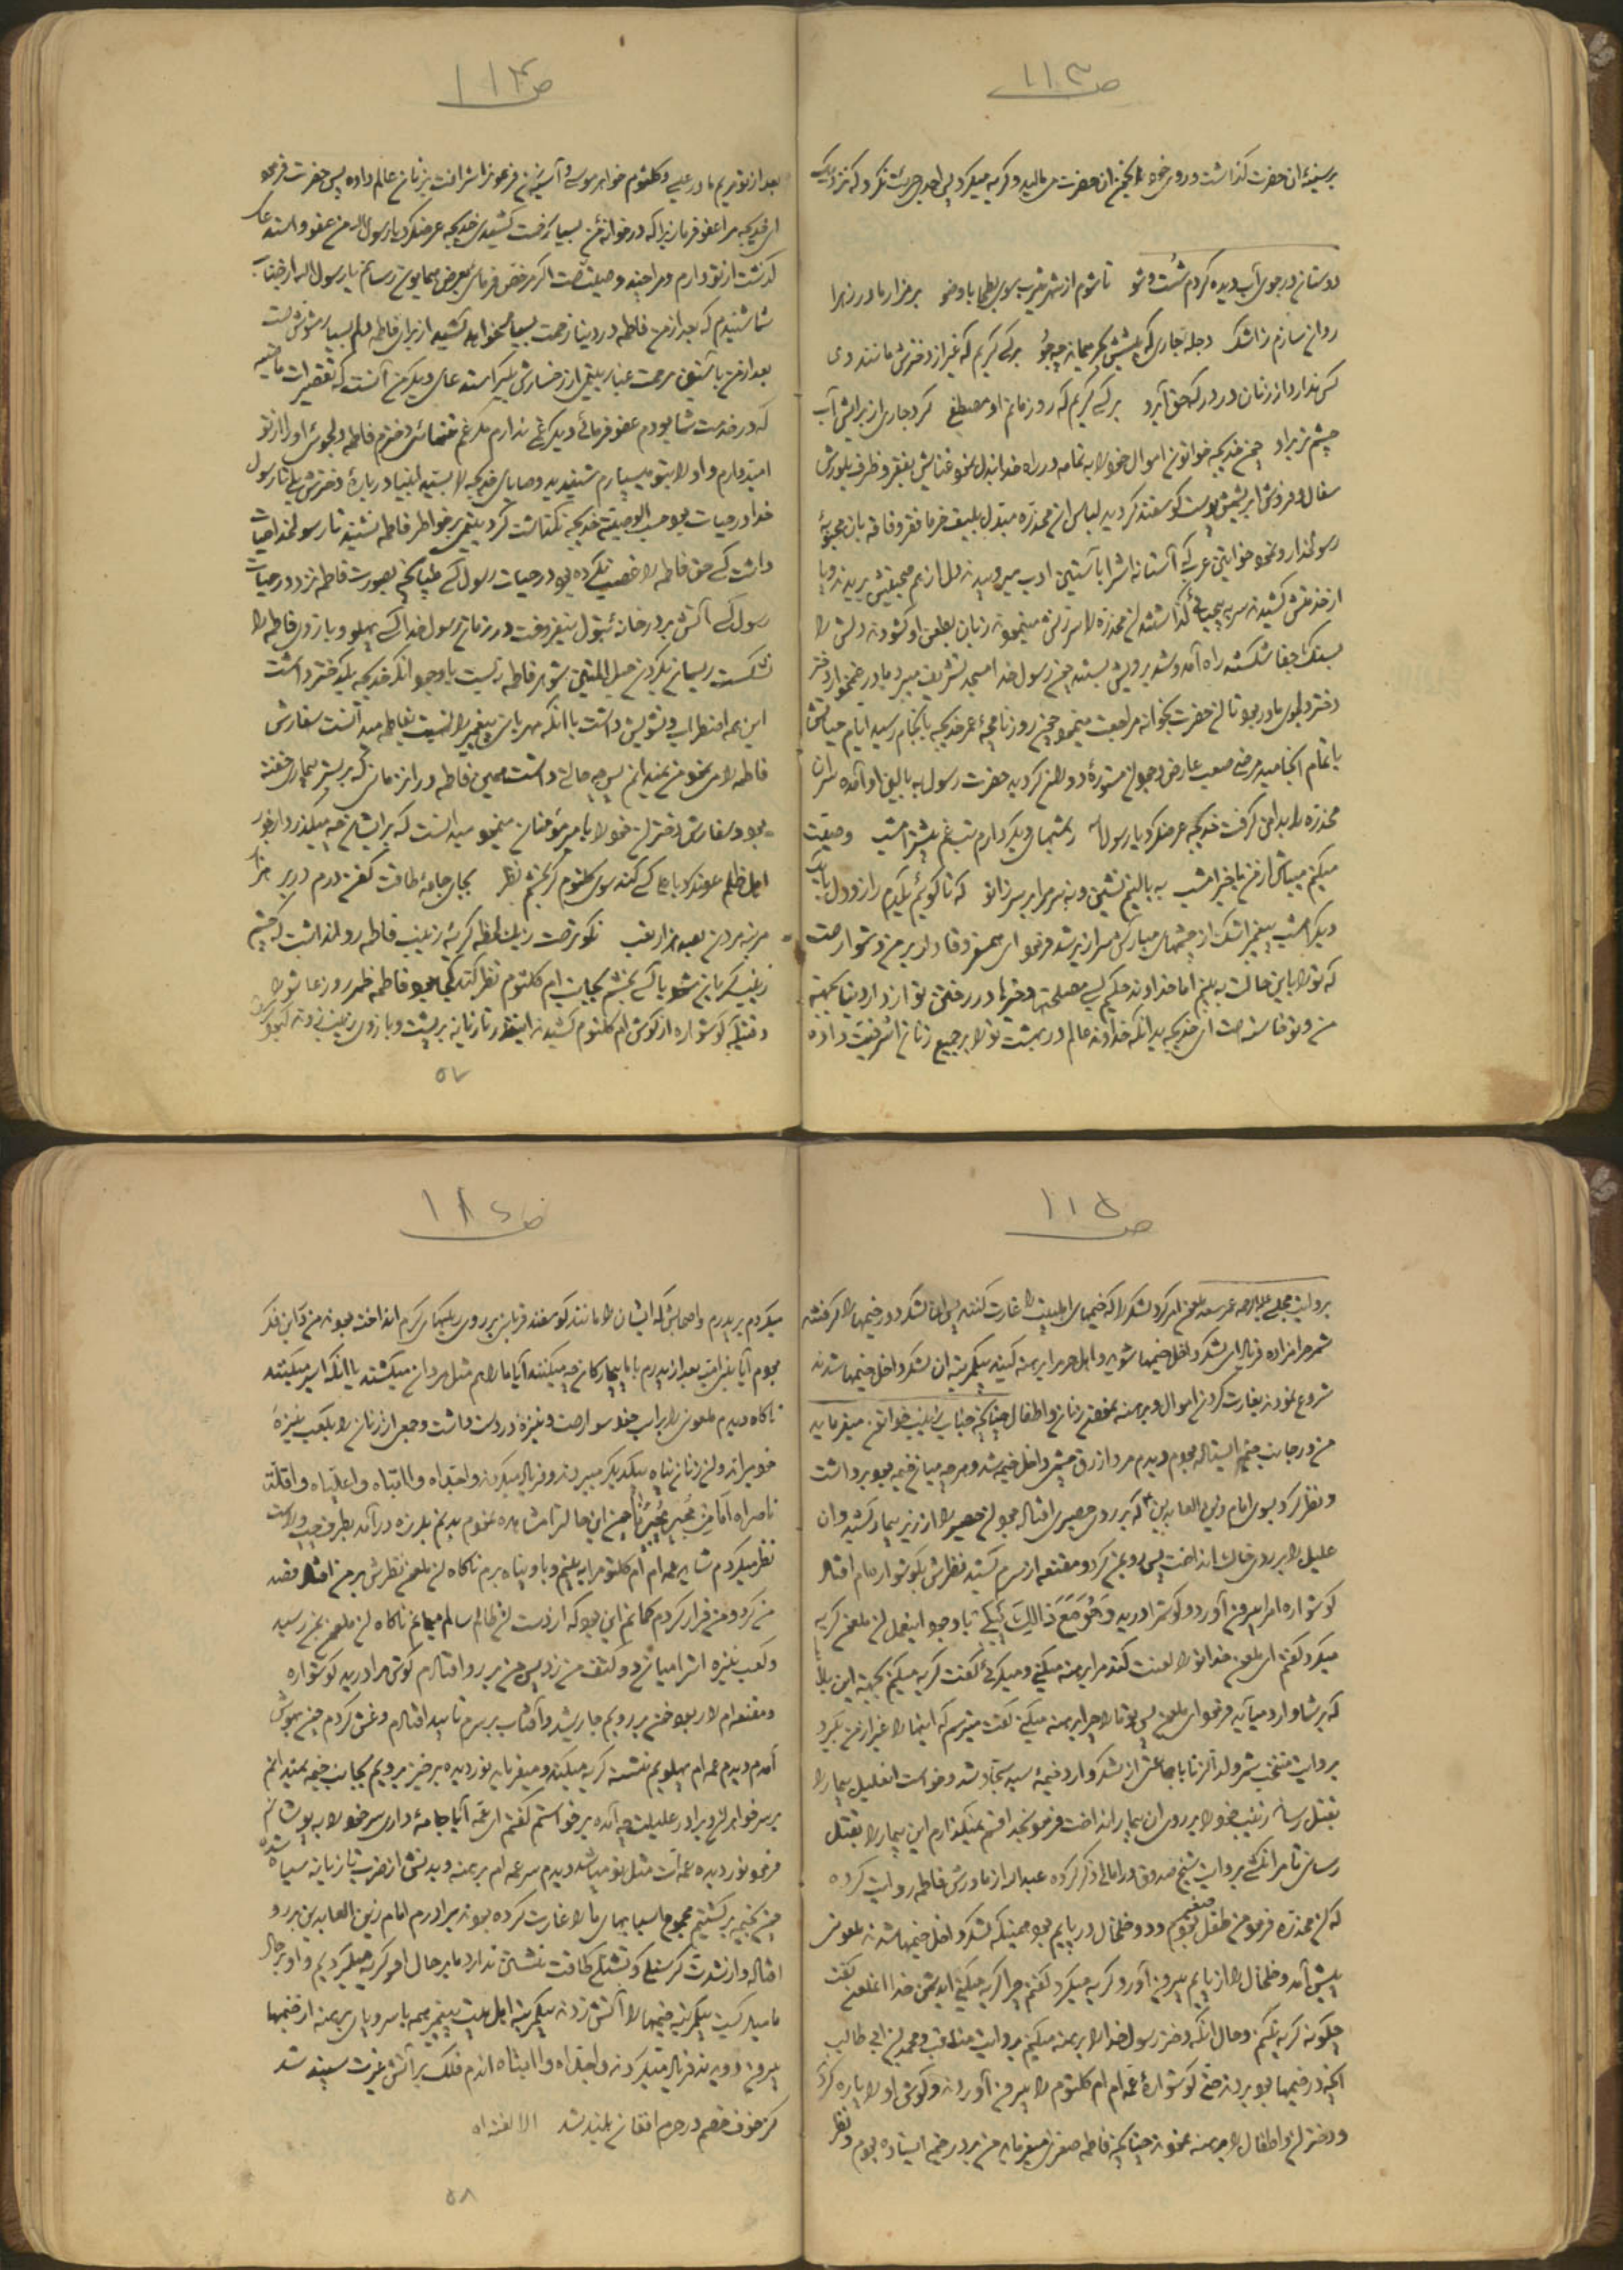 ص ۱۱۳
بر سینهٔ آن حضرت گذاشت و روی خود را آنحضرت می‌مالید و گریه میکرد پس احدی جرئت نکرد که نزدیک
دوستان در جوی آب دیده کردم شست و شو تا شوم از شهر یثرب سوی بطحا با وضو بر مزار مادر زهرا
روان سازم ز اشک دجلهٔ جاری که پیشش بحر عمان چه جو بر کی گریم که غیر از دخترش مانند وی
کس ندارد از زنان در درگه حق آبرو بر کی گریم که روز ماتم او مصطفی کرد جاری از برایش آب
چشم تر براو چون خدیجه خواتون اموال خود را به تمامه در راه خدا بذل نمود غنایش بفقر و ظرف بلورش
سفال و فروش ابریشمش پوست گوسفند گردید لباس آن مخدره مبدل بلیف خرما فقر و فاقه بان محبوبهٔ
رسولخدا رو نمود خواتین عرب که آستانه اش را با آستین ادب میروبیدند دل از هم صحبتیش بریدند و پا
از خدمتش کشیدند سر به بیحیائی گذاشتند آن مخدره را سرزنش مینمودند زبان بطعن او گشودند دلش را
بسنگ جفا شکستند راه آمد و شد برویش بستند چون رسول خدا بمسجد تشریف میبرد مادر غمخوار دختر
دختر دلجوی مادر بود تا آن حضرت بخانه مراجعت مینمود چون روزنامچهٔ عمر خدیجه بانجام رسید ایام حیاتش
باتمام انجامید مرضی صعب عارض وجود آن مستورهٔ دوران گردید حضرت رسول به بالین او آمده سر آن
مخدره را بدامن گرفت خدیجه عرضکرد یا رسول الله ز شبهای دیگر دارم تب غم بیشتر امشب وصیت
میکنم میباش از من با خبر امشب به بالینم نشین و بنه سرم را بر سر زانو که تا گویم بیک دم راز دل با
دیگر امشب پیغمبر اشک از چشمهای مبارکش سرازیر شد فرمود ای همسر وفادار بر من دشوار است
که تو را باین حالت به بینم اما خداوند حکیم کسی مصلحتها و خیرها در رفتن تو از دار دنیا بجهته
من و تو خاسته است ای خدیجه بدانکه خداوند عالم در بهشت تو را بر جمیع زنان اشرفیت داده
ص ۱۱۴
بعد از تو مریم مادر عیسی و کلثوم خواهر موسی و آسیه زن فرعون را شرافت بر زنان عالم داده پس حضرت فرمود
ای خدیجه مرا عفو فرما زیرا که در خانهٔ من بسیار زحمت کشیدی خدیجه عرضکرد یا رسول الله من عفو و استدعای
گذشت از تو دارم و مرا چند وصیت است اگر مرخص فرمائی بعرض همایونت رسانم یا رسول الله از جناب
شما شنیدم که بعد از من فاطمه در دنیا زحمت بسیار خواهد کشید از برای فاطمه دلم بسیار مشوش است
بعد از من با آستین مرحمت غبار یتیمی از رخسارش بگیر استدعای دیگر من آنست که تقصیرات ماضیه
که در خدمت شما بودم عفو فرمائی دیگر غمی ندارم مگر غم تنهائی دخترم فاطمه دلجوئی او را از تو
امید دارم و او را بتو میسپارم شنیدید وصایای خدیجه را بسید انبیا در بارهٔ دخترش بلی تا رسول
خدا در حیات بود حسب الوصیتة خدیجه نگذاشت گرد یتیمی بر خواطر فاطمه نشیند تا رسولخدا حیات
داشت کسی حق فاطمه را غصب نکرده بود در حیات رسول کسی طپانچه بصورت فاطمه نزد در حیات
رسول کسی آتش بر در خانهٔ بتول نیفروخت در زمان رسول خدا کسی پهلو و بازوی فاطمه را
نشکست ریسمان بگردن حبل المتین شوهر فاطمه نبست با وجود آنکه خدیجه یک دختر داشت
این همه اضطراب و تشویش داشت با آنکه مهربانی پیغمبر را نسبت بفاطمه میدانست سفارش
فاطمه را می‌نمود من نمیدانم پس چه حالت داشت حسین فاطمه در آن زمانی که بر بستر بیماری خفته
بود و سفارش دختران خود را بامیر مؤمنان مینمود میدانست که بر ایشان چه میگذرد از جور
اهل ظلم
مرتبه بردن
زینب گریان شود یا کسی بخشم بجانب ام کلثوم نظر کند کجا بود فاطمه ظهر روز عاشورا
وقتیکه گوشواره از گوش ام کلثوم کشیدند اینقدر تازیانه بر پشت و بازوی زینب زدند که
۵۷
ص ۱۱۵
بروایت مجلسی علیه الرحمه عمر سعد ملعون امر کرد لشکر را که خیمهای اهلبیت را غارت کنند پس آن لشکر دور خیمها را گرفتند
شمر حرامزاده فریاد ای لشکر داخل خیمها شوید و اهل حرم را برهنه کنید بیکمرتبه آن لشکر داخل خیمها شدند
شروع نمودند بغارت کردن اموال و برهنه نمودن زنان و اطفال چنانچه جناب زینب خواتون میفرماید
من در جانب خیمه ایستاده بودم دیدم مرد ازرق چشمی داخل خیمه شد و هرچه میان خیمه بود برداشت
و نظر کرد بسوی امام زین العابدین که بر روی حصیری افتاده بود آن حصیر را از زیر بیمار کشید و آن
علیل را بر روی خاک انداخت پس رو بمن کرد و مقنعه از سرم کشید نظرش بگوشوارهام افتاد
گوشواره ام را بیرون آورد و گوشم را درید وَ هُوَ مَعَ ذالِکَ یَبْکی با وجود اینعمل آن ملعون گریه
میکرد گفتم ای ملعون خدا تو را لعنت کند مرا برهنه میکنی و میگرئی گفت گریه میکنم بجهته این بلا
که بر شما وارد میآید فرمود ای ملعون پس تو ما را چرا برهنه میکنی گفت میترسم که اینها را غیر از من بگیرد
بروایت منتخب شمر ولد الزنا با جماعتی از لشکر وارد خیمهٔ سید سجاد شد و خواست آنعلیل بیمار را
بقتل رساند زینب خود را بر روی آن بیمار انداخت فرمود بخدا قسم نمیگذارم این بیمار را بقتل
رسانی تا مرا نکشی بروایت شیخ صدوق در امالی ذکر کرده عبدالله از مادرش فاطمه روایت کرده
که آن مخدره فرمود من طفل صغیری بودم و دو خلخال در پایم بود همینکه لشکر داخل خیمها شدند ملعونی
پیش آمد و خلخال را از پایم بیرون آورد و گریه میکرد گفتم چرا گریه میکنی ای دشمن خدا آنملعون گفت
چگونه گریه نکنم و حال آنکه دختر رسول خدا را برهنه میکنم بروایت مناقب و محمد بن ابی طالب
آنچه در خیمها بود بردند حتی گوشوارهٔ عمه ام ام کلثوم را بیرون آوردند و گوش او را پاره کردند
و دختران و اطفال را برهنه نمودند چنانچه فاطمه صغری میفرماید من بر در خیمه ایستاده بودم و نظر
ص ۱۱۶
میکردم بر پدرم و اصحابش که ایشان را مانند گوسفند قربانی بر روی ریگهای گرم انداخته بودند من در این فکر
بودم آیا بنی امیه بعد از پدرم با ما بیچارگان چه میکنند آیا ما را هم مثل مردان میکشند یا آنکه اسیر میکنند
ناگاه دیدم ملعونی را بر اسب خود سوار است و نیزهٔ در دست داشت و جمعی از زنان را بکعب نیزهٔ
خود میراند و آن زنان پناه بیکدیگر میبردند و فریاد میکردند واجداه وا ابتاه وا علیاه وا قلة
ناصراه اَما مِن مُجیرٍ یُجیرُنا چون این حالت را مشاهده نمودم بدنم بلرزه درآمد بطرف چپ و راست
نظر میکردم شاید عمه ام ام کلثوم را به بینم و باو پناه برم ناگاه آن ملعون نظرش بر من افتاد قصد
من کرد و من فرار کردم گمانم این بود که از دست آن ظالم سالم میمانم ناگاه آن ملعون بمن رسید
و کعب نیزه اش را میان دو کتف من زد پس من بر رو افتادم گوش مرا درید گوشواره
و مقنعه ام را ربود خون بر رویم جاری شد و آفتاب بر سرم تابید افتادم و غش کردم چون بهوش
آمدم دیدم عمه ام پهلویم نشسته گریه میکند و میفرماید نور دیده برخیز برویم بجانب خیمه نمیدانم
بر سر خواهران و برادر علیلت چه آمده برخواستم گفتم ای عمه آیا جامهٔ داری سر خود را به پوشانم
فرمود نور دیده عمه ات مثل تو میباشد دیدم سر عمه ام برهنه و بدنش از ضرب تازیانه سیاه شده
چون بخیمه برگشتیم جمیع اسبابهای ما را غارت کرده بودند برادرم امام زین العابدین بر رو
افتاده و از شدت گرسنگی و تشنگی طاقت نشستن ندارد ما بر حال او گریه میکردیم و او بر حال
ما میگریست بیکمرتبه خیمها را آتش زدند بیکمرتبه اهل بیت پیغمبر همه با سر و پای برهنه از خیمها
بیرون دویدند فریاد میکردند واجداه وا ابتاه آندم فلک بر آتش غیرت سپند شد
کز خوف خصم در حرم افغان بلند شد الا لعنة الله
۵۸